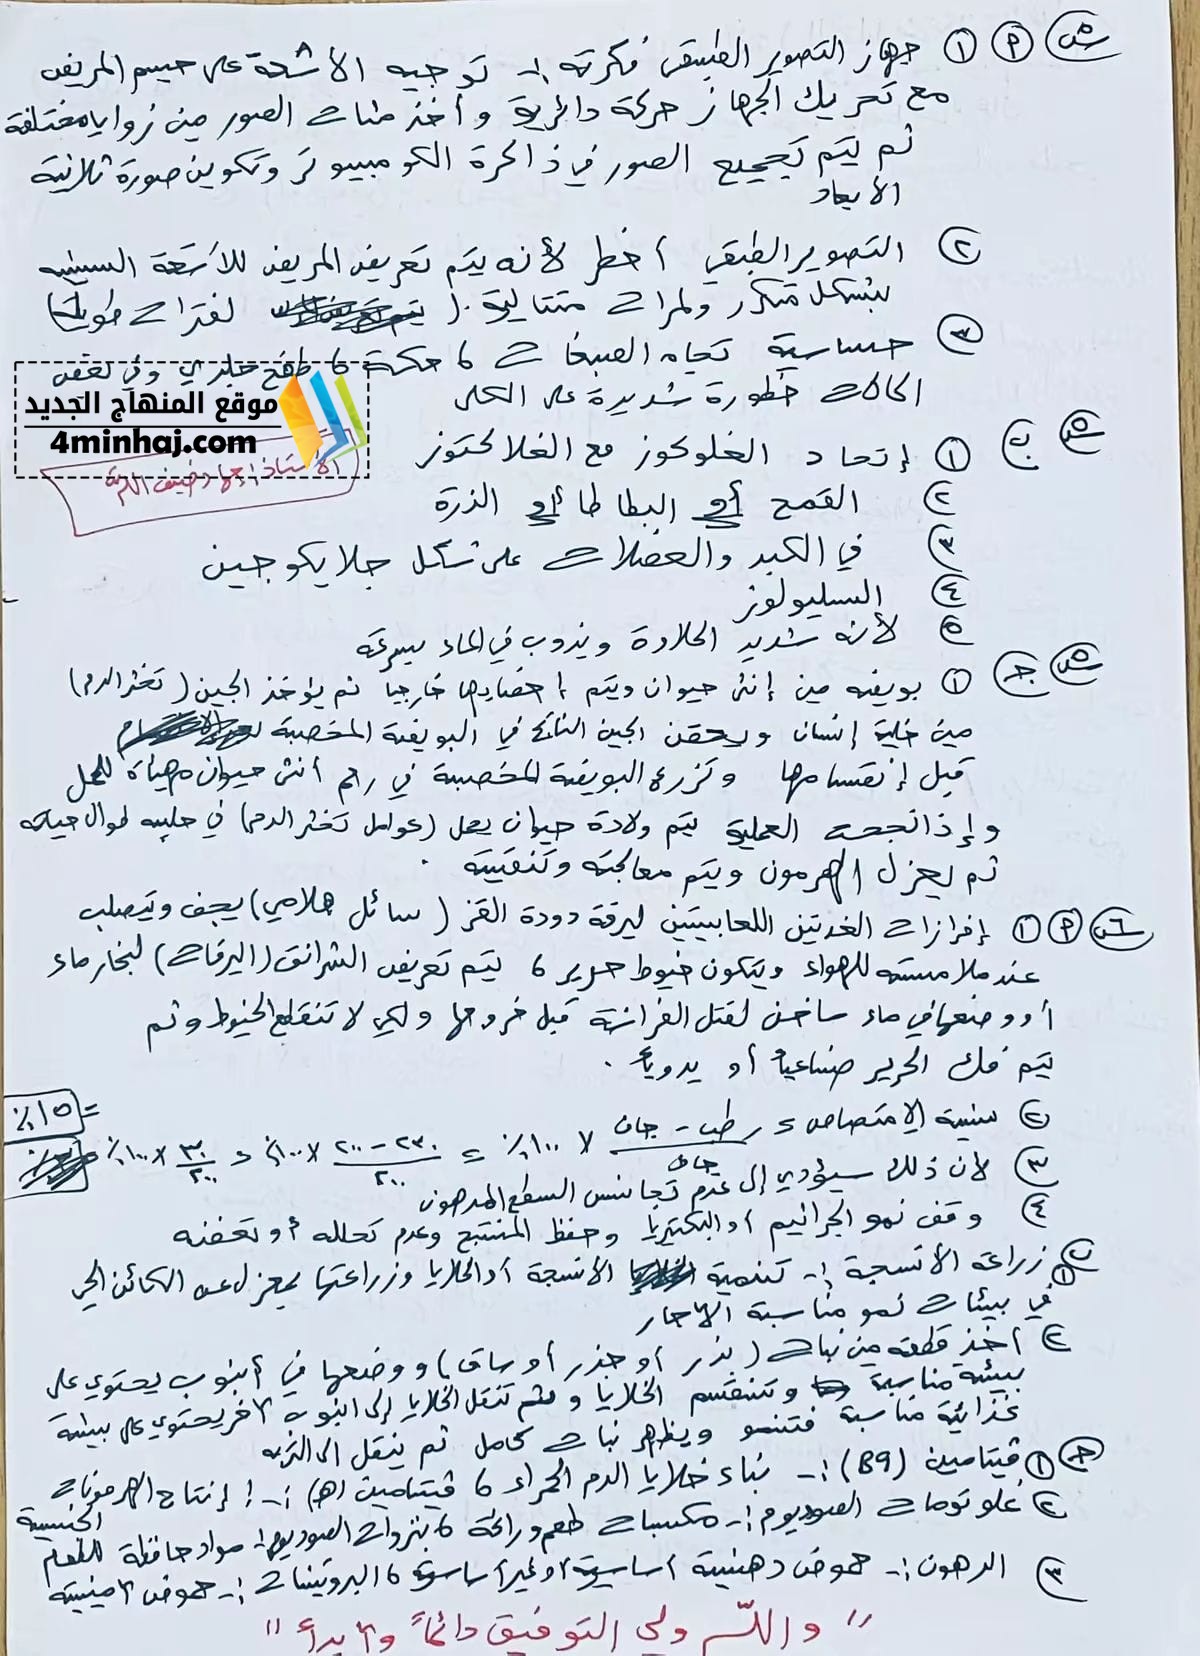 س٥ أ ١ جهاز التصوير الطبقي فكرته :- توجيه الأشعة على جسم المريض
مع تحريك الجهاز حركة دائرية وأخذ مئات الصور من زوايا مختلفة
ثم يتم تجميع الصور في ذاكرة الكومبيوتر وتكوين صورة ثلاثية
الأبعاد
٢ التصوير الطبقي أخطر لأنه يتم تعريض المريض للأشعة السينية
بشكل متكرر ولمرات متتالية. ( لفترات طويلة)
٣ حساسية تجاه الصبغات ، حكة ، طفح جلدي وفي بعض
الحالات خطورة شديدة على الكلى
موقع المنهاج الجديد
4minhaj.com
س٥ ب ١ إتحاد الغلوكوز مع الغلاكتوز
الأستاذ: جهاد ضيف الله
٢ القمح أو البطاطا أو الذرة
٣ في الكبد والعضلات على شكل جلايكوجين
٤ السليولوز
٥ لأنه شديد الحلاوة ويذوب في الماء بسرعة
س٥ جـ ١ بويضه من إنثى حيوان ويتم إخصابها خارجياً ثم يؤخذ الجين (تخثر الدم)
من خلية إنسان ويحقن الجين الناتج في البويضة المخصبة
قبل إنقسامها وتزرع البويضة المخصبة في رحم أنثى حيوان مهيأة للحمل
وإذا نجحت العملية يتم ولادة حيوان يحمل (عوامل تخثر الدم) في حليبه طوال حياته
ثم يعزل الهرمون ويتم معالجته وتنقيته .
س٦ أ ١ إفرازات الغدتين اللعابيتين ليرقة دودة القز (سائل هلامي) يجف ويتصلب
عند ملامسته للهواء ويتكون خيوط حرير ، يتم تعريض الشرانق (اليرقات) لبخار ماء
أو وضعها في ماء ساخن لقتل الفراشة قبل خروجها ولكي لا تنقطع الخيوط وثم
يتم فك الحرير صناعياً أو يدوياً .
٢ نسبة الإمتصاص = رطب - جاف / جاف × ١٠٠٪ = ٢٣٠ - ٢٠٠ / ٢٠٠ × ١٠٠٪ = ٣٠ / ٢٠٠ × ١٠٠٪ = ١٥٪
٣ لأن ذلك سيؤدي إلى عدم تجانس السطح المدهون
٤ وقف نمو الجراثيم أو البكتيريا وحفظ المنتج وعدم تحلله أو تعفنه
ب ١ زراعة الأنسجة :- تنمية الأنسجة أو الخلايا وزراعتها بمعزل عن الكائن الحي
في بيئات نمو مناسبة الآجار
٢ أخذ قطعه من نبات (بذر أو جذر أو ساق) ووضعها في أنبوب يحتوي على
بيئة مناسبة وتنقسم الخلايا وثم تنقل الخلايا إلى انبوب آخر يحتوي على بيئة
غذائية مناسبة فتنمو ويظهر نبات كامل ثم ينقل الى التربه
جـ ١ فيتامين (B9) :- بناء خلايا الدم الحمراء ، فيتامين (هـ) :- إنتاج الهرمونات الجنسية
٢ غلوتومات الصوديوم :- مكسبات طعم ورائحة ، بنزوات الصوديوم :- مواد حافظة للطعام
٣ الدهون :- حموض دهنية أساسية أو غير أساسية ، البروتينات :- حموض أمينية
"والله ولي التوفيق دائماً وأبداً"